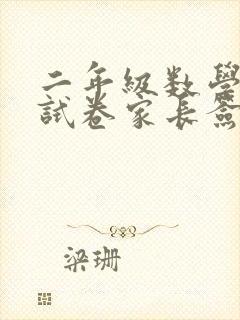 二年级数学
试卷家长签
梁珊